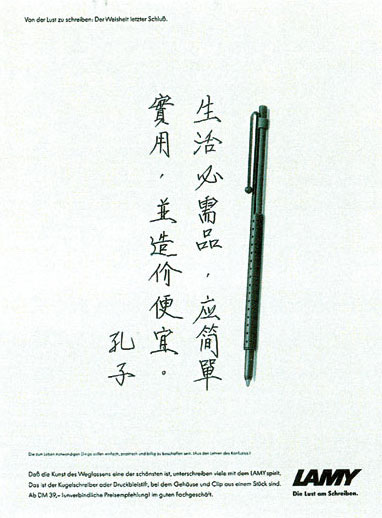 Von der Lust zu schreiben: Der Weisheit letzter Schluß.
生活必需品，应简單
實用，並造价便宜。
孔子
Die zum Leben notwendigen Dinge sollen einfach, praktisch und billig zu beschaffen sein. (Aus den Lehren des Konfuzius.)
Daß die Kunst des Weglassens eine der schönsten ist, unterschreiben viele mit dem LAMY spirit.
Das ist der Kugelschreiber oder Druckbleistift, bei dem Gehäuse und Clip aus einem Stück sind.
Ab DM 39,- (unverbindliche Preisempfehlung) im guten Fachgeschäft.
LAMY
Die Lust am Schreiben.